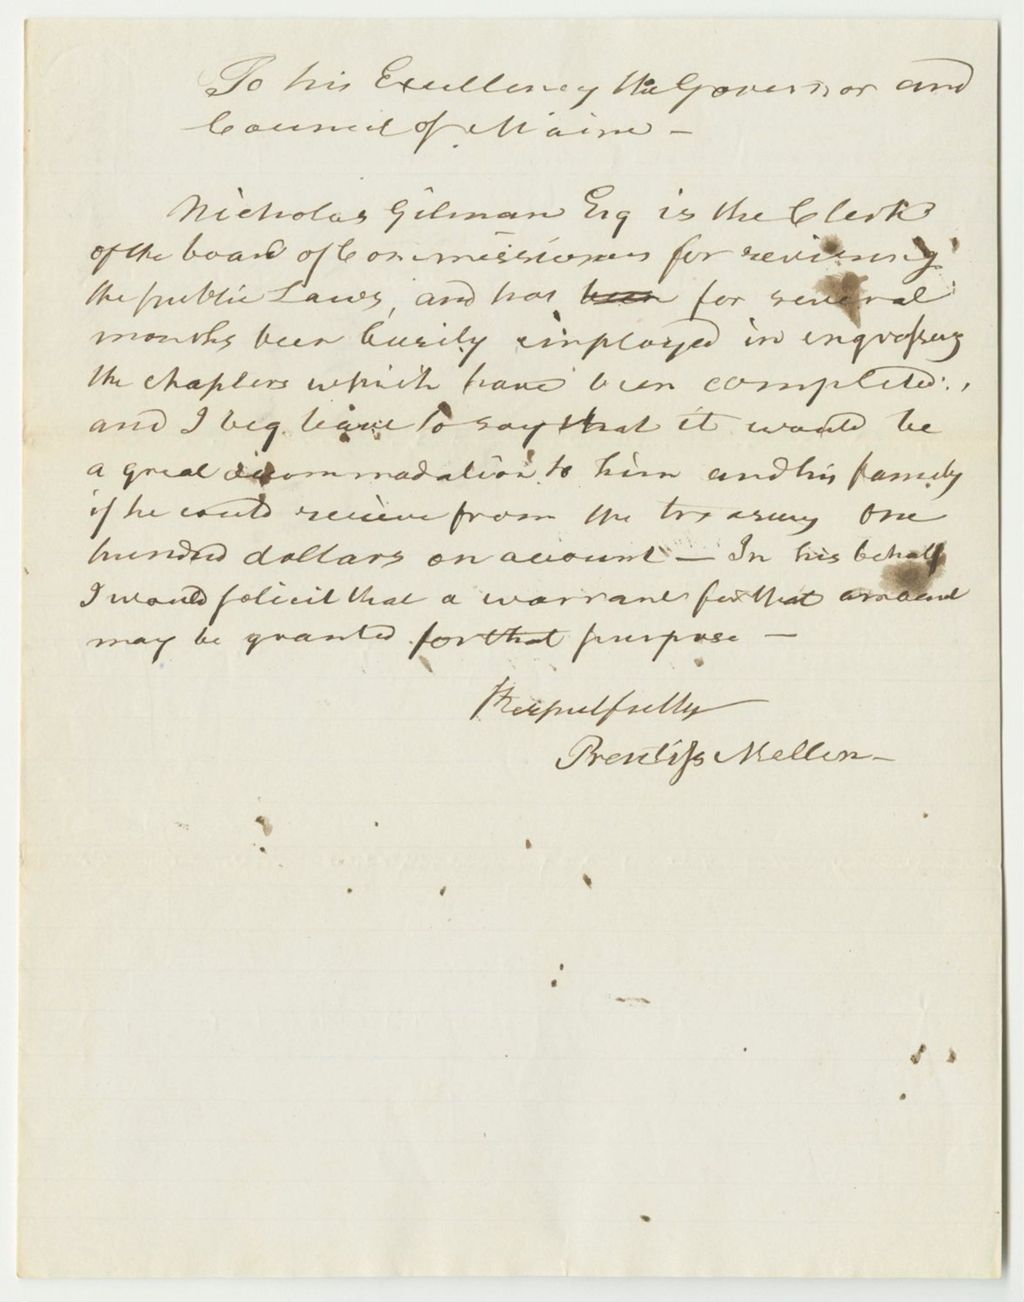 To his Excellency the Governor and
Council of Maine —
Nicholas Gilman Esq is the Clerk
of the board of Commissioners for revising
the public Laws, and has been for several
months been busily employed in engrossing
the chapters which have been completed,
and I beg leave to say that it would be
a great accommodation to him and his family
if he could receive from the treasury One
hundred dollars on account — In his behalf
I would solicit that a warrant for that amount
may be granted for that purpose —
Respectfully
Prentiss Mellen —